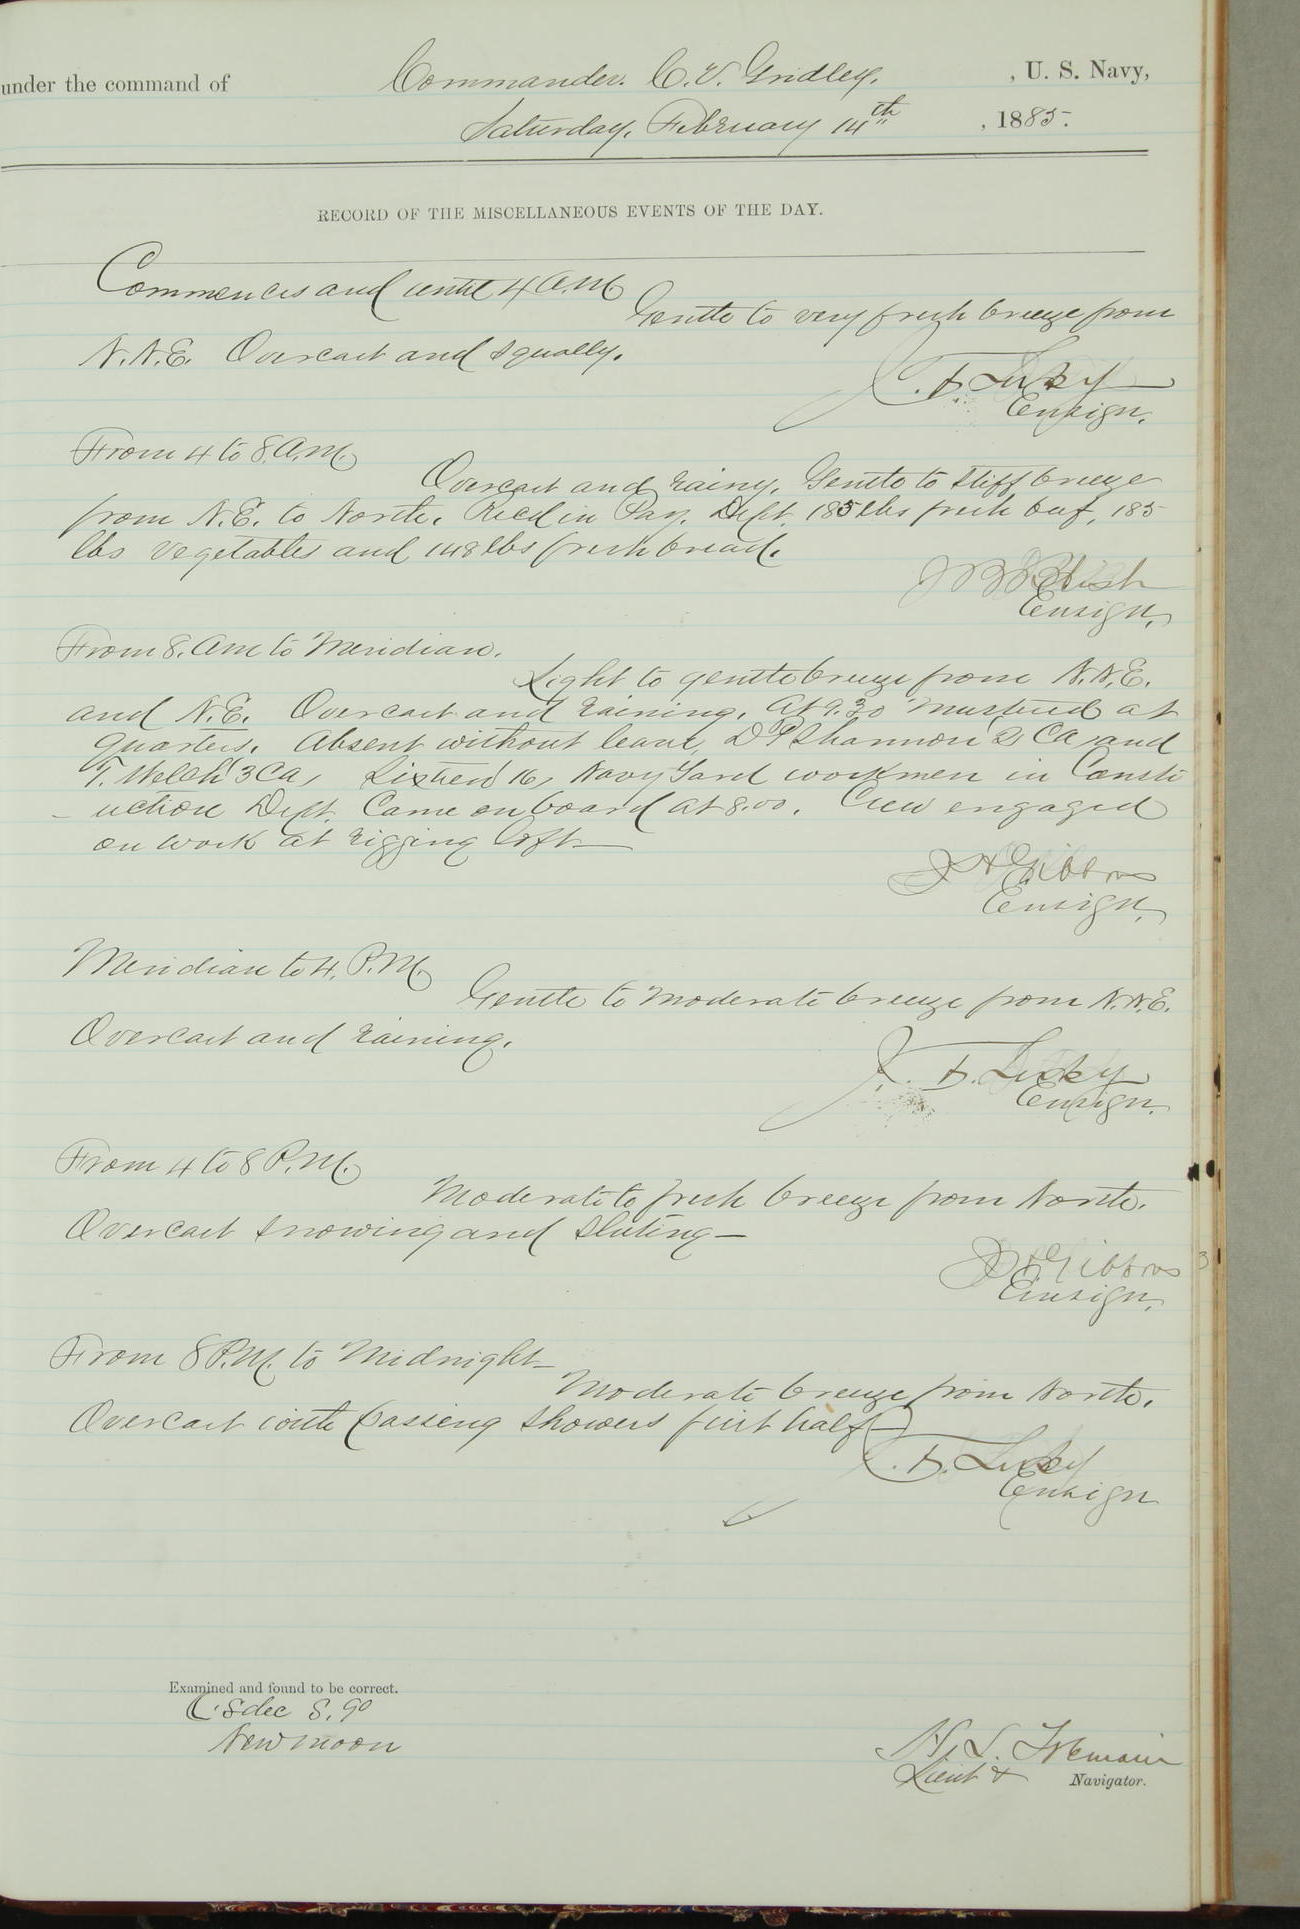 under the command of Commander. C. V. Gridley. , U. S. Navy,
Saturday, February 14th , 1885.
RECORD OF THE MISCELLANEOUS EVENTS OF THE DAY.
Commences and until 4 A.M.
Gentle to very fresh breeze from
N.N.E. Overcast and squally.
Ensign.
From 4 to 8. A.M.
Overcast and rainy. Gentle to stiff breeze
from N.E. to North. Recd in Pay. Dept. 185 lbs fresh beef, 185
lbs vegetables and 148 lbs fresh bread.
Ensign.
From 8. Am to Meridian.
Light to gentle breeze from N.N.E.
and N.E. Overcast and raining. At 9.30 mustered at
quarters. Absent without leave, D P Shannon 2 Ca, and
T. Welch 3 Ca, Sixteen 16, Navy Yard workmen in Constr
- uction Dept. Came on board at 8.00. Crew engaged
on work at rigging loft—
J H Gibbons
Ensign.
Meridian to 4. P.M.
Gentle to moderate breeze from N.N.E.
Overcast and raining.
Ensign.
From 4 to 8 P.M.
Moderate to fresh breeze from North.
Overcast snowing and sleeting—
J H Gibbons
Ensign.
From 8 P.M. to Midnight—
Moderate breeze from North.
Overcast with passing showers first half—
Ensign
Examined and found to be correct.
New moon
Lieut & Navigator.